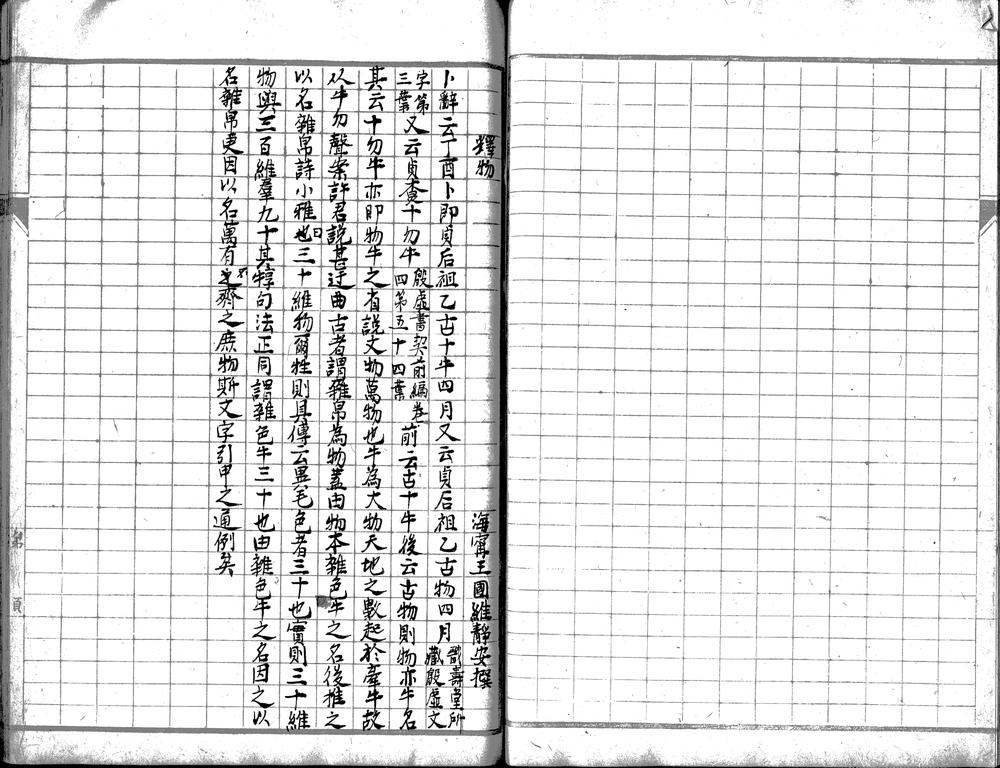 釋物
海甯王國維靜安撰
卜辭云丁酉卜即貞后祖乙古十牛四月又云貞后祖乙古物四月戩壽堂所藏殷虛文
字第三葉又云貞十勿牛殷虛書契前編卷四第五十四葉前云古十牛後云古物則物亦牛名
其云十勿牛亦即物牛之省説文物萬物也牛為大物天地之數起於牽牛故
从牛勿聲案許君說甚迂曲古者謂雜帛為物蓋由物本雜色牛之名後推之
以名雜帛詩小雅曰三十維物爾牲則具傳云異毛色者三十也實則三十維
物與三百維羣九十其犉句法正同謂雜色牛三十也由雜色牛之名因之以
名雜帛更因以名萬有不齊之庶物斯文字引申之通例矣
第 頁